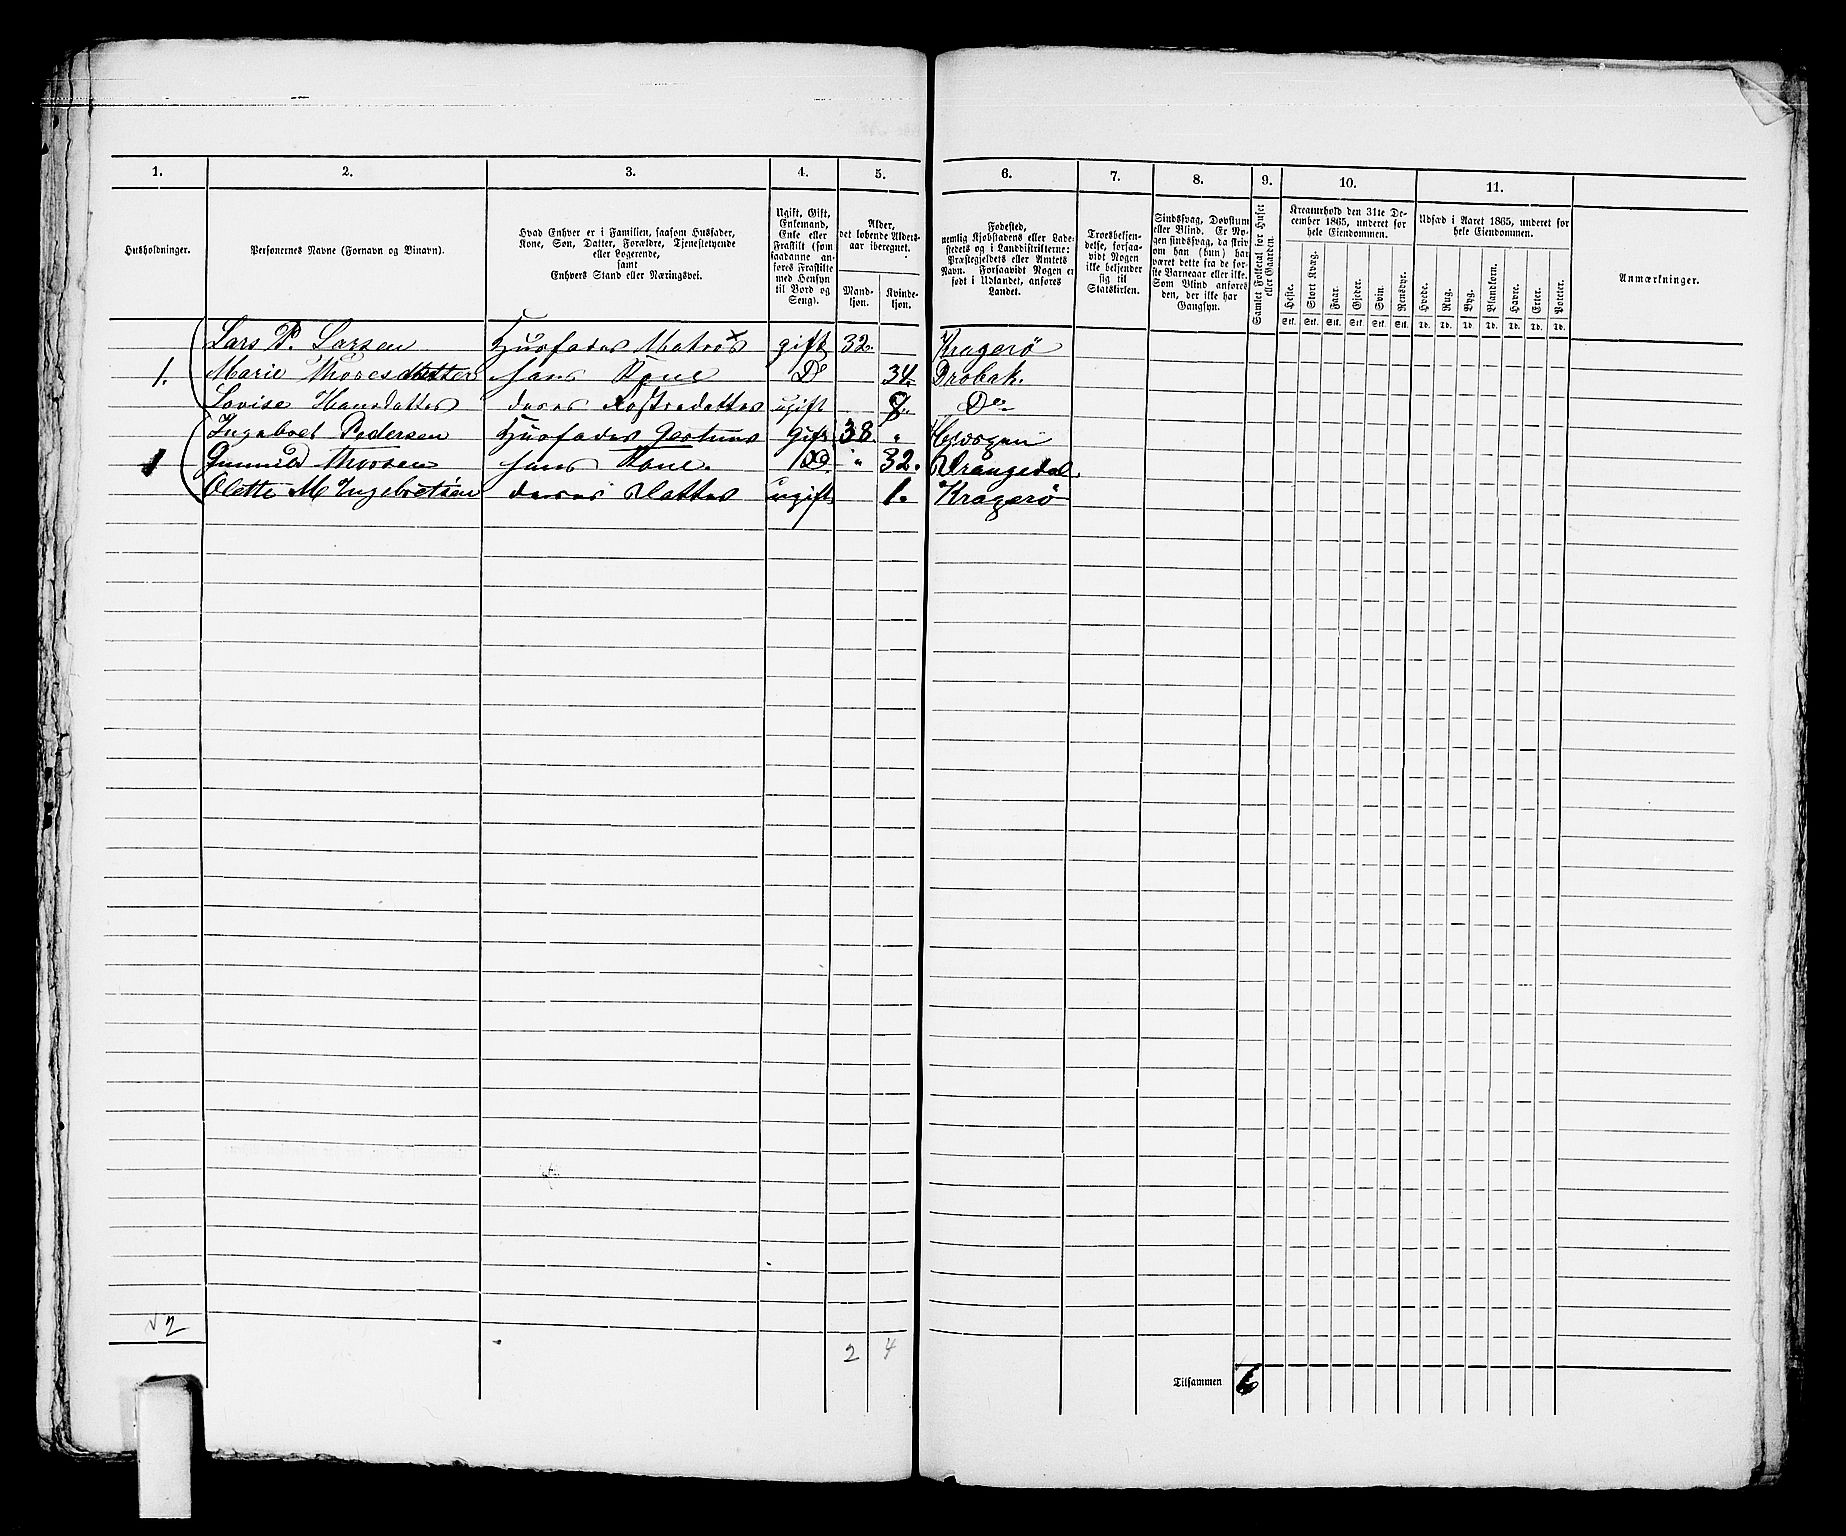 1. 2. 3. 4. 5. 6. 7. 8. 9. 10. 11.
Husholdninger.
Personernes Navne (Fornavn og Binavn).
Hvad Enhver er i Familien, saasom Husfader,
Kone, Søn, Datter, Forældre, Tjenestetyende
eller Logerende,
samt
Enhvers Stand eller Næringsvei.
Ugift, Gift,
Enkemand,
Enke eller
Fraskilt (som
saadanne an-
føres Fraskilte
med Hensyn
til Bord og
Seng).
Alder,
det løbende Alders-
aar iberegnet.
Mand-
kjøn.
Kvinde-
kjøn.
Fødested,
nemlig Kjøbstadens eller Lade-
stedets og i Landdistrikterne:
Præstegjeldets eller Amtets
Navn. Forsaavidt Nogen er
født i Udlandet, anføres
Landet.
Troesbekjen-
delse, forsaa-
vidt Nogen
ikke bekjender
sig til
Statskirken.
Sindssvag, Døvstum
eller Blind. Er No-
gen sindssvag, da skriv
om han (hun) har
været dette fra de før-
ste Barneaar eller ikke.
Som Blind anføres
den, der ikke har
Gangsyn.
Samlet Folketal for Huset
eller Gaarden.
Kreaturhold den 31te De-
cember 1865, underet for
hele Eiendommen.
Heste. Stort Kvæg. Faar. Gjeder. Svin. Rensdyr.
Stk. Stk. Stk. Stk. Stk. Stk.
Udsæd i Aaret 1865, underet for
hele Eiendommen.
Hvede. Rug. Byg. Blandkorn. Havre. Erter. Poteter.
Td. Td. Td. Td. Td. Td. Td.
Anmærkninger.
Lars P. Larsen Husfader Matros gift 32. Kragerö
1. Marie Thoresdatter hans Kone Do 34. Drobak.
Lovise Hansdatter deres Fostredatter ugift Do
Ingebret Pedersen Husfader gift 38. "
1 Gunnild Thorsen hans Kone. Do " 32. Drangedal
Olette M Ingebretsen deres Datter ugift 1. Kragerö
2
2 4
Tilsammen 6